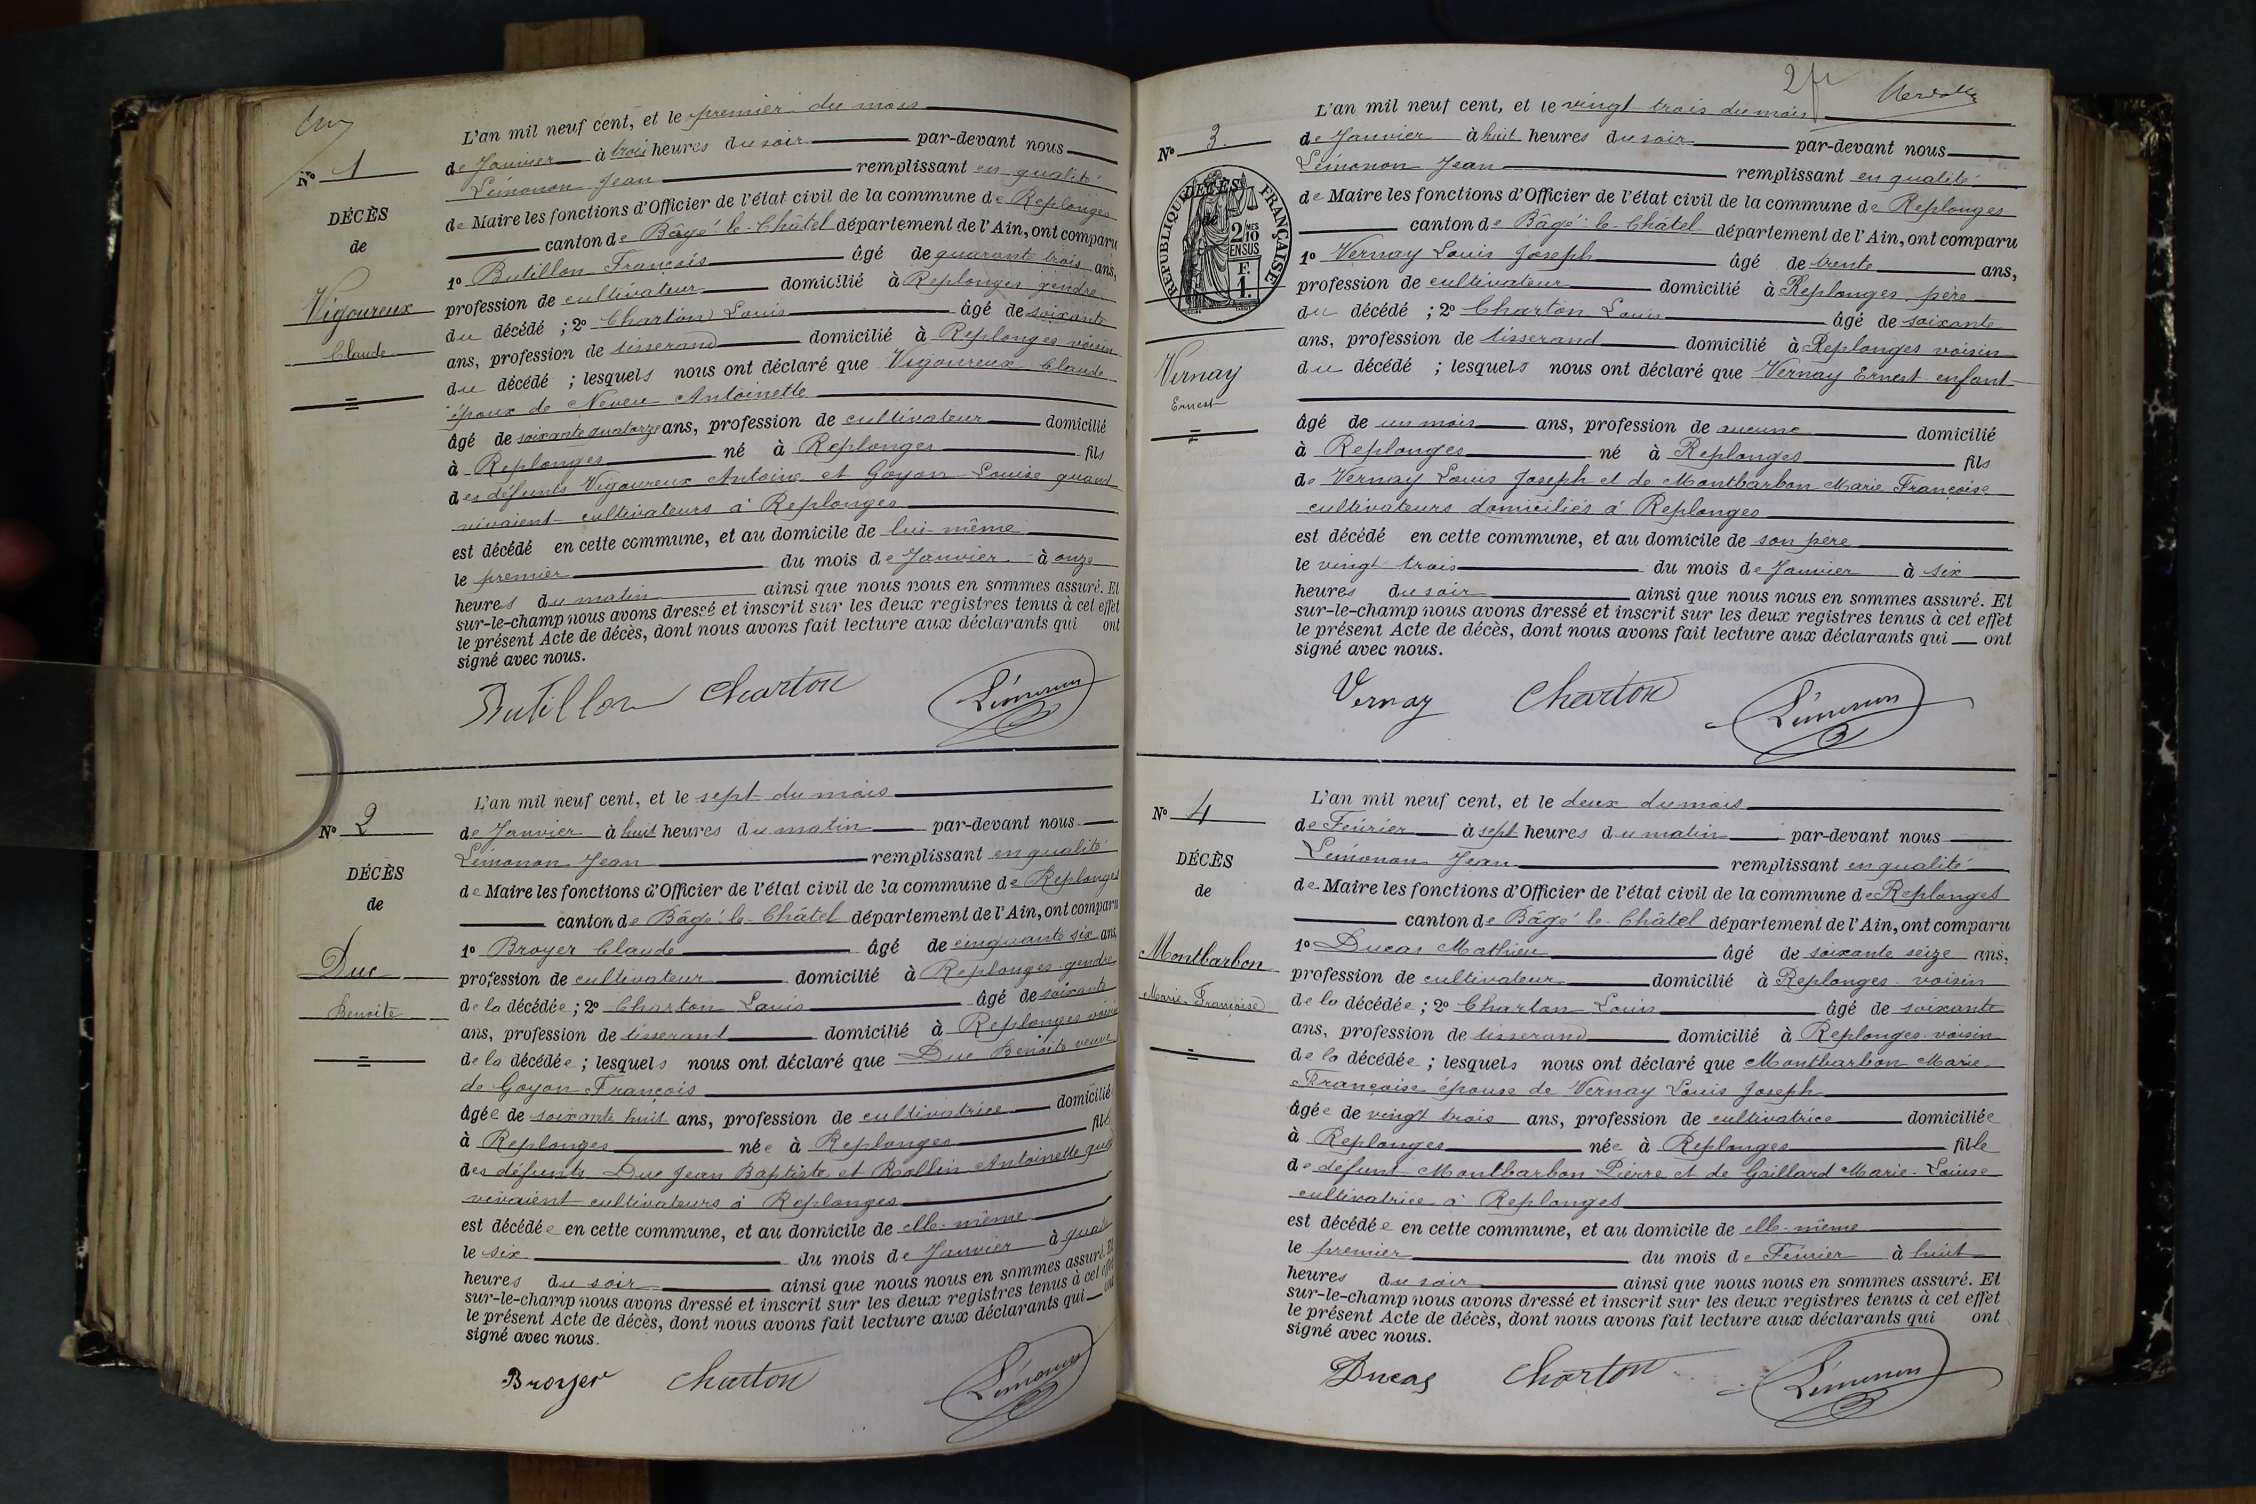 N° 1
DÉCÈS
de
Vigoureux
Claude
L'an mil neuf cent, et le premier du mois
de Janvier à trois heures du soir par-devant nous
Lémonon Jean remplissant en qualité
de Maire les fonctions d'Officier de l'état civil de la commune de Replonges
canton de Bâgé-le-Châtel département de l'Ain, ont comparu
1° Butillon François âgé de quarante trois ans,
profession de cultivateur domicilié à Replonges gendre
du décédé ; 2° Charton Louis âgé de soixante
ans, profession de tisserand domicilié à Replonges voisin
du décédé ; lesquels nous ont déclaré que Vigoureux Claude
époux de Neveu Antoinette
âgé de soixante quatorze ans, profession de cultivateur domicilié
à Replonges né à Replonges fils
des défunts Vigoureux Antoine et Goyon Louise quand
vivaient cultivateurs à Replonges
est décédé en cette commune, et au domicile de lui-même
le premier du mois de Janvier à onze
heures du matin ainsi que nous nous en sommes assuré. Et
sur-le-champ nous avons dressé et inscrit sur les deux registres tenus à cet effet
le présent Acte de décès, dont nous avons fait lecture aux déclarants qui ont
signé avec nous.
Butillon Charton Lémonon
N° 2
DÉCÈS
de
Duc
Benoite
L'an mil neuf cent, et le sept du mois
de Janvier à huit heures du matin par-devant nous
Lémonon Jean remplissant en qualité
de Maire les fonctions d'Officier de l'état civil de la commune de Replonges
canton de Bâgé-le-Châtel département de l'Ain, ont comparu
1° Broyer Claude âgé de cinquante six ans,
profession de cultivateur domicilié à Replonges gendre
de la décédée ; 2° Charton Louis âgé de soixante
ans, profession de tisserant domicilié à Replonges voisin
de la décédée ; lesquels nous ont déclaré que Duc Benoite veuve
de Goyon François
âgée de soixante huit ans, profession de cultivatrice domicilié
à Replonges née à Replonges fille
des défunts Duc Jean Baptiste et Rollin Antoinette
vivaient cultivateurs à Replonges
est décédée en cette commune, et au domicile de elle-même
le six du mois de Janvier à quatre
heures du soir ainsi que nous nous en sommes assuré. Et
sur-le-champ nous avons dressé et inscrit sur les deux registres tenus à cet effet
le présent Acte de décès, dont nous avons fait lecture aux déclarants qui ont
signé avec nous.
Broyer Charton Lémonon
N° 3
DÉCÈS
de
RÉPUBLIQUE FRANÇAISE
2 MES
10
EN SUS
F.
1.
Vernay
Ernest
L'an mil neuf cent, et le vingt trois du mois
de Janvier à huit heures du soir par-devant nous
Lémonon Jean remplissant en qualité
de Maire les fonctions d'Officier de l'état civil de la commune de Replonges
canton de Bâgé-le-Châtel département de l'Ain, ont comparu
1° Vernay Louis Joseph âgé de trente ans,
profession de cultivateur domicilié à Replonges, père
du décédé ; 2° Charton Louis âgé de soixante
ans, profession de tisserand domicilié à Replonges voisin
du décédé ; lesquels nous ont déclaré que Vernay Ernest enfant
âgé de un mois ans, profession de aucune domicilié
à Replonges né à Replonges fils
de Vernay Louis Joseph et de Montbarbon Marie Françoise
cultivateurs domiciliés à Replonges
est décédé en cette commune, et au domicile de son père
le vingt trois du mois de Janvier à six
heures du soir ainsi que nous nous en sommes assuré. Et
sur-le-champ nous avons dressé et inscrit sur les deux registres tenus à cet effet
le présent Acte de décès, dont nous avons fait lecture aux déclarants qui ont
signé avec nous.
Vernay Charton Lémonon
N° 4
DÉCÈS
de
Montbarbon
Marie-Françoise
L'an mil neuf cent, et le deux du mois
de Février à sept heures du matin par-devant nous
Lémonon Jean remplissant en qualité
de Maire les fonctions d'Officier de l'état civil de la commune de Replonges
canton de Bâgé-le-Châtel département de l'Ain, ont comparu
1° Ducas Mathieu âgé de soixante seize ans,
profession de cultivateur domicilié à Replonges voisin
de la décédée ; 2° Charton Louis âgé de soixante
ans, profession de tisserand domicilié à Replonges voisin
de la décédée ; lesquels nous ont déclaré que Montbarbon Marie
Françoise épouse de Vernay Louis Joseph
âgée de vingt trois ans, profession de cultivatrice domiciliée
à Replonges née à Replonges fille
de défunt Montbarbon Pierre et de Gaillard Marie-Louise
cultivatrice à Replonges
est décédée en cette commune, et au domicile de elle-même
le premier du mois de Février à huit
heures du soir ainsi que nous nous en sommes assuré. Et
sur-le-champ nous avons dressé et inscrit sur les deux registres tenus à cet effet
le présent Acte de décès, dont nous avons fait lecture aux déclarants qui ont
signé avec nous.
Ducas Charton Lémonon